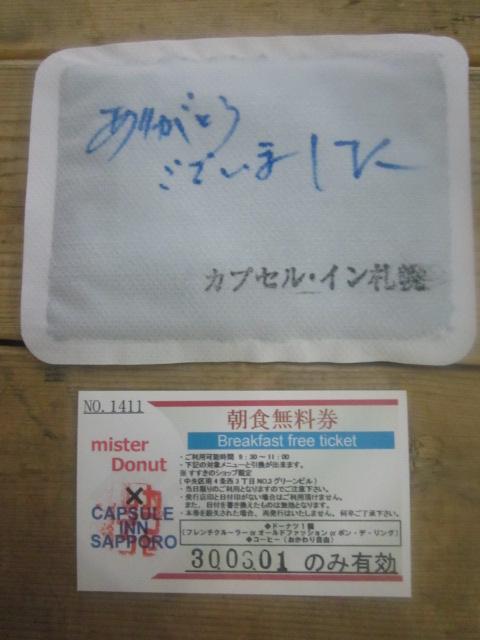 ありがとう
ございました
カプセル・イン札幌
NO.1411
朝食無料券
Breakfast free ticket
mister
Donut
×
CAPSULE
INN
SAPPORO
・ご利用可能時間 9:30~11:00
・下記の対象メニューと引換が出来ます。
※すすきのショップ限定
(中央区南4条西3丁目NO.3グリーンビル)
・当日限りのご利用となりますのでご注意下さい。
・発行店印と日付印がない場合はご利用頂けません。
また、日付を書き換えたものは無効となります。
・本券を紛失された場合、再発行はいたしません。何卒ご了承下さい。
◆ドーナツ1個
(フレンチクルーラー or オールドファッション or ポン・デ・リング)
◆コーヒー(おかわり自由)
300601 のみ有効